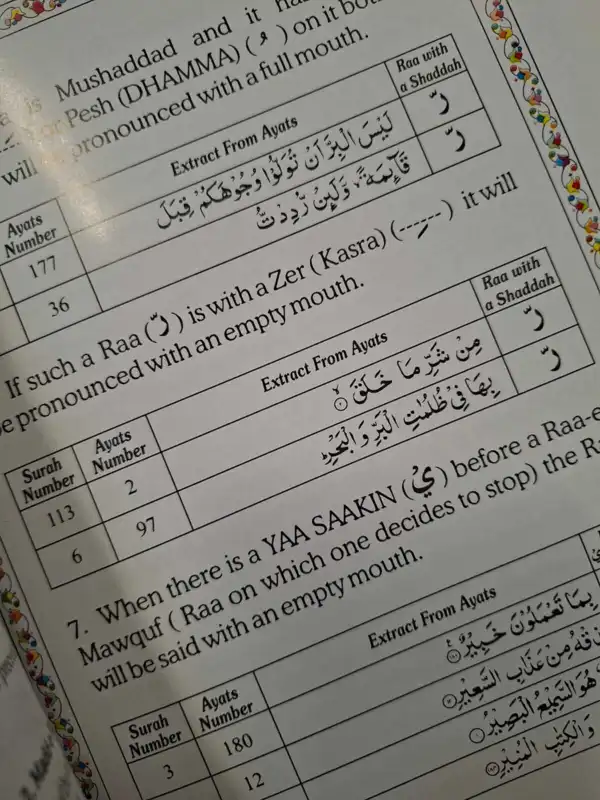 is Mushaddad and it
or Pesh (DHAMMA) ( ُ ) on it
will pronounced with a full mouth.
Ayats Number
Extract From Ayats
Raa with a Shaddah
177
لَيْسَ الْبِرَّ اَنْ تُوَلُّوْا وُجُوْهَكُمْ قِبَلَ
رّ
36
قَآئِمَةً ۙ وَّلَئِنْ رُّدِدْتُّ
رّ
If such a Raa (رّ) is with a Zer (Kasra) (---ِ---) it will
pronounced with an empty mouth.
Surah Number
Ayats Number
Extract From Ayats
Raa with a Shaddah
113
2
مِنْ شَرِّ مَا خَلَقَ ۙ
رّ
6
97
بِهَا فِيْ ظُلُمٰتِ الْبَرِّ وَ الْبَحْرِ ؕ
رّ
7. When there is a YAA SAAKIN (يْ) before a Raa-e
Mawquf ( Raa on which one decides to stop) the
will be said with an empty mouth.
Surah Number
Ayats Number
Extract From Ayats
3
180
بِمَا تَعْمَلُوْنَ خَبِيْرٌ
12
مِنْ عَذَابِ السَّعِيْرِ
هُوَ السَّمِيْعُ الْبَصِيْرُ
وَالْكِتٰبِ الْمُنِيْرِ